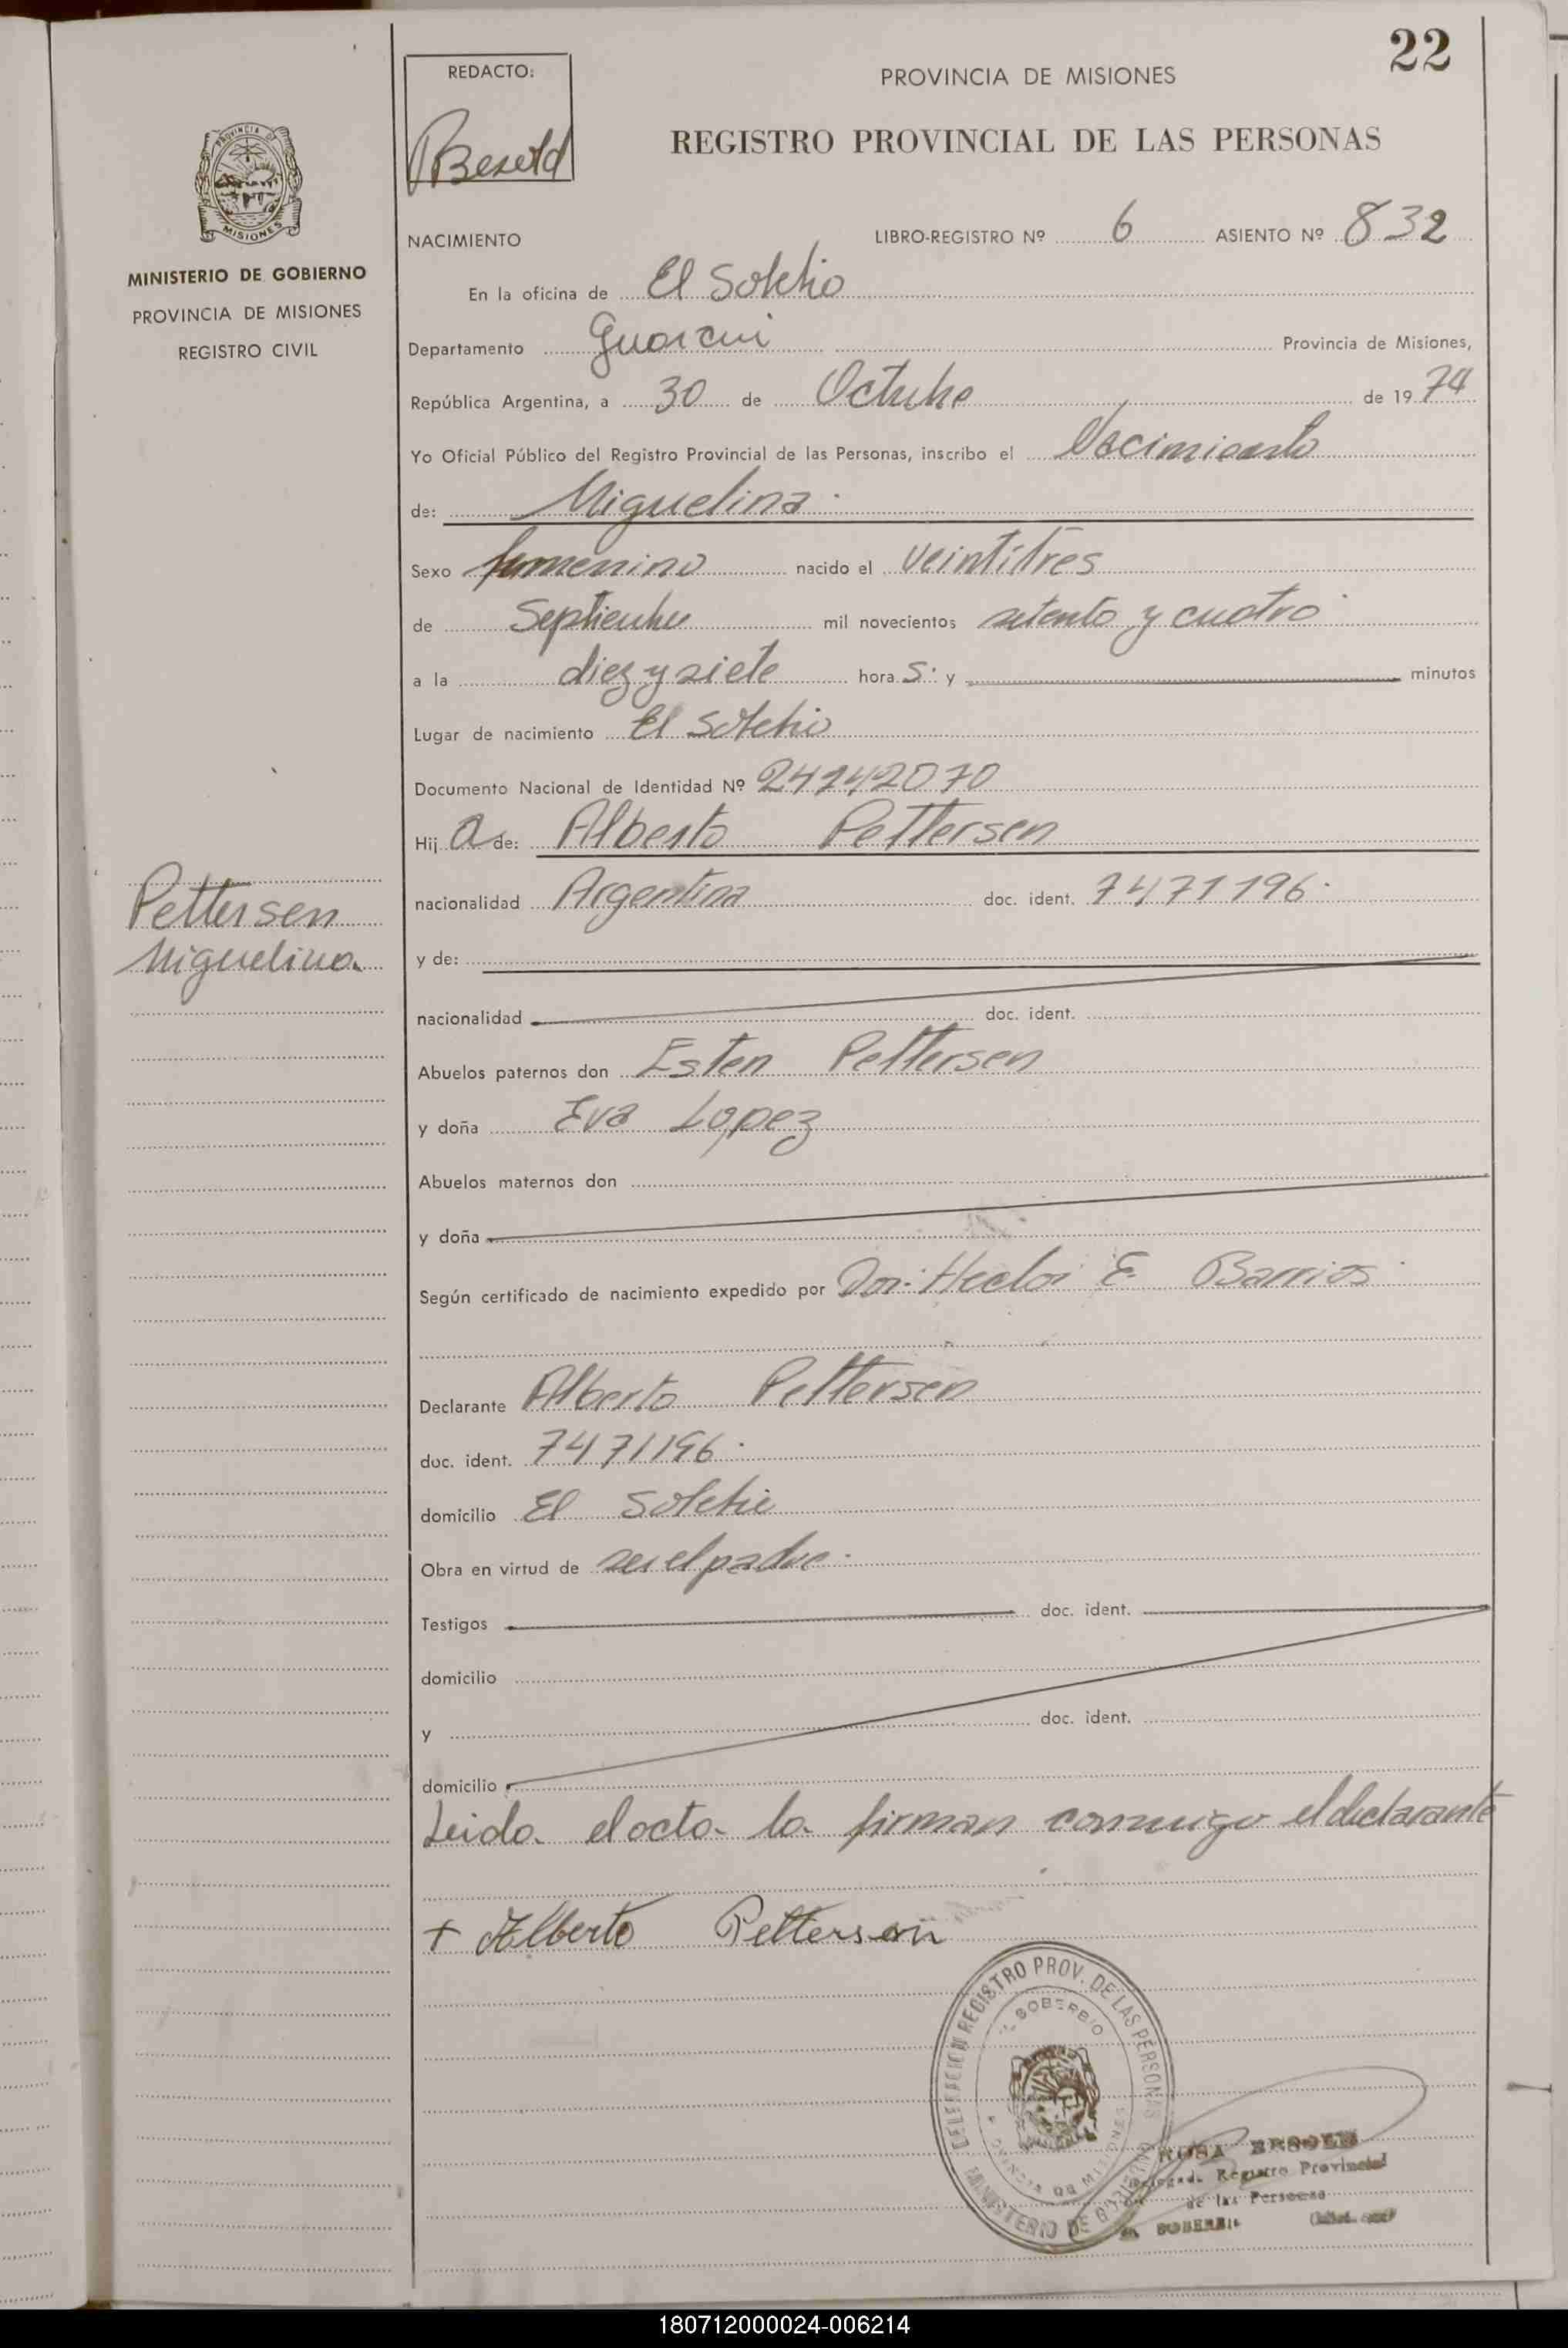 22
REDACTO:
PROVINCIA DE MISIONES
REGISTRO PROVINCIAL DE LAS PERSONAS
PROVINCIA DE
MISIONES
MINISTERIO DE GOBIERNO
PROVINCIA DE MISIONES
REGISTRO CIVIL
NACIMIENTO
LIBRO-REGISTRO Nº 6 ASIENTO Nº 832
En la oficina de El Soberbio
Departamento Guarani Provincia de Misiones,
República Argentina, a 30 de Octubre de 1974
Yo Oficial Público del Registro Provincial de las Personas, inscribo el Nacimiento
de: Miguelina
Sexo femenino nacido el veintitres
de Septiembre mil novecientos setenta y cuatro
a la diez y siete hora s y minutos
Lugar de nacimiento El Soberbio
Documento Nacional de Identidad Nº 24142070
Hij a de: Alberto Pettersen
nacionalidad Argentina doc. ident. 7471196
Pettersen
Miguelina
y de:
nacionalidad doc. ident.
Abuelos paternos don Esten Pettersen
y doña Eva Lopez
Abuelos maternos don
y doña
Según certificado de nacimiento expedido por Dor. Hector E. Barrios
Declarante Alberto Pettersen
doc. ident. 7471196
domicilio El Soberbio
Obra en virtud de ser el padre
Testigos doc. ident.
domicilio
y doc. ident.
domicilio
Leida el acta la firman conmigo el declarante
+ Alberto Pettersen
DELEGACION REGISTRO PROV. DE LAS PERSONAS
EL SOBERBIO
PROVINCIA DE MISIONES
MINISTERIO DE GOBIERNO
ROSA
Delegada Registro Provincial
de las Personas
EL SOBERBIO
180712000024-006214